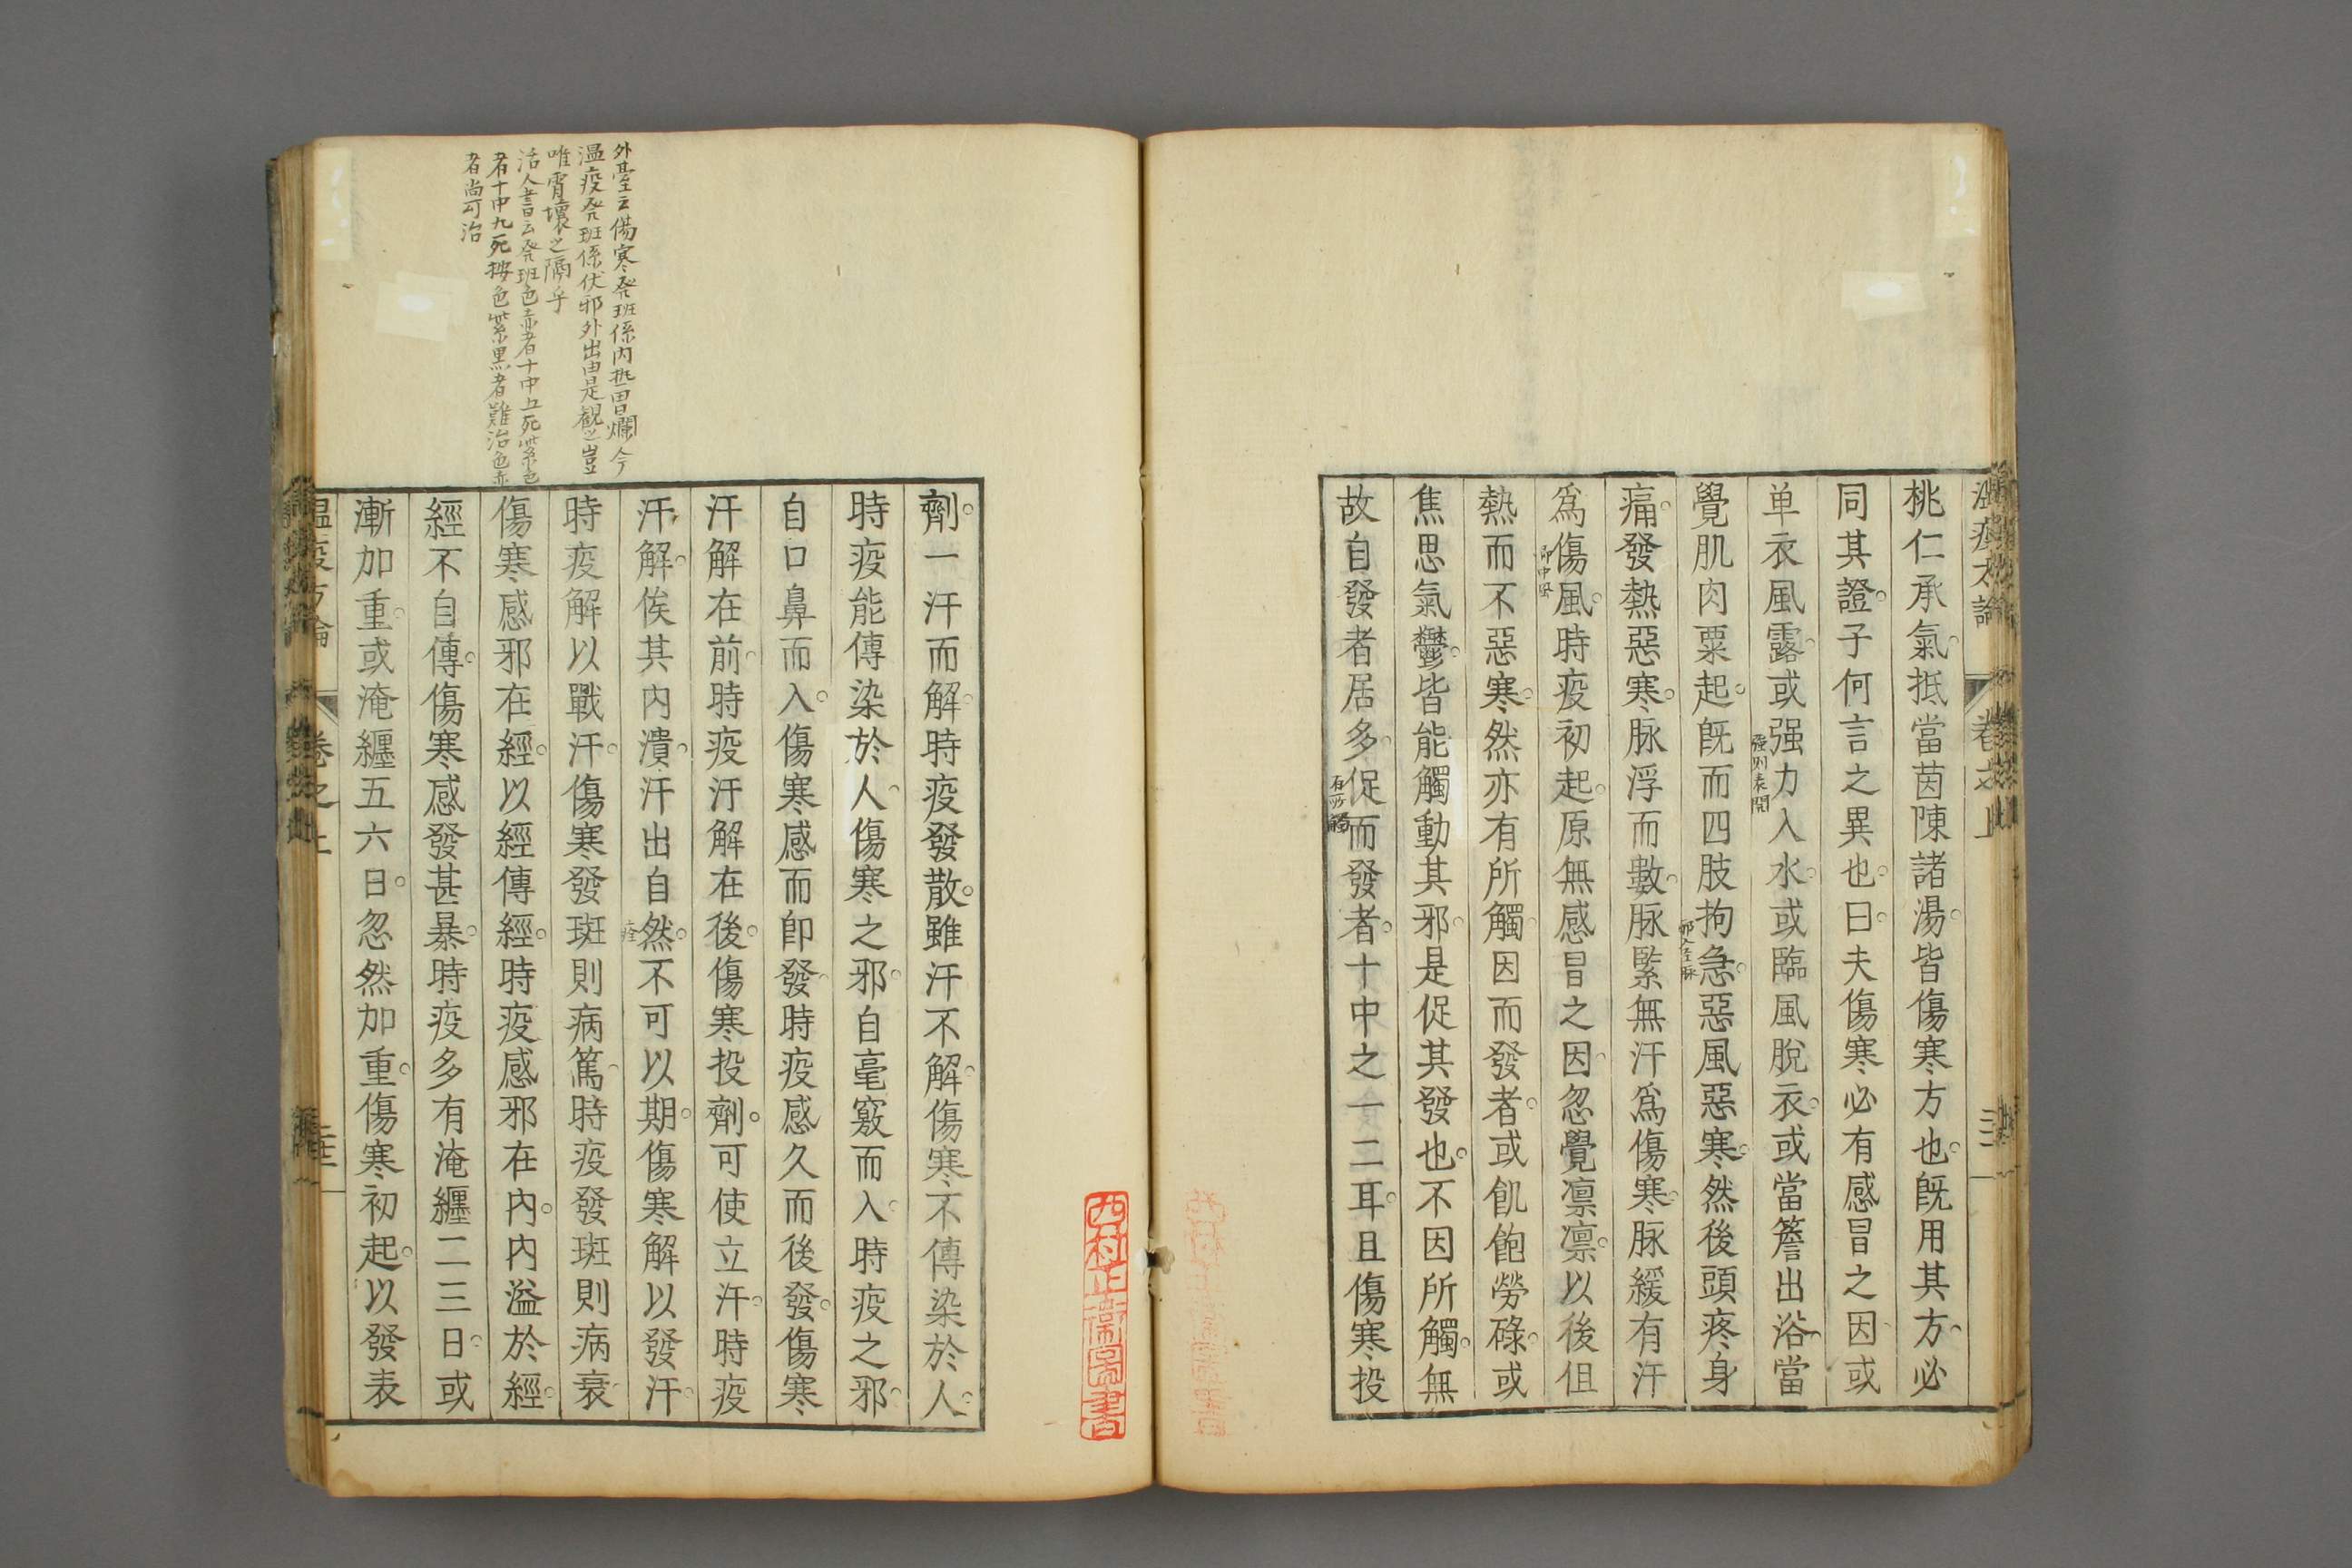 桃仁承氣抵當茵陳諸湯皆傷寒方也既用其方必
同其證子何言之異也曰夫傷寒必有感冒之因或
单衣風露或强力入水或臨風脫衣或當簷出浴當
强則表開
覺肌肉粟起既而四肢拘急惡風惡寒然後頭疼身
痛發熱惡寒脉浮而數脉緊無汗爲傷寒脉緩有汗
爲傷風時疫初起原無感冒之因忽覺凛凛以後但
即中風
熱而不惡寒然亦有所觸因而發者或飢飽勞碌或
焦思氣鬱皆能觸動其邪是促其發也不因所觸無
故自發者居多促而發者十中之一二耳且傷寒投
有所觸
劑一汗而解時疫發散雖汗不解傷寒不傳染於人
時疫能傳染於人傷寒之邪自毫竅而入時疫之邪
自口鼻而入傷寒感而即發時疫感久而後發傷寒
汗解在前時疫汗解在後傷寒投劑可使立汗時疫
汗解俟其內潰汗出自然不可以期傷寒解以發汗
時疫解以戰汗傷寒發斑則病篤時疫發斑則病衰
傷寒感邪在經以經傳經時疫感邪在內內溢於經
經不自傳傷寒感發甚暴時疫多有淹纏二三日或
漸加重或淹纏五六日忽然加重傷寒初起以發表
溫疫方論 卷之上
外臺云傷寒発斑係内熱胃爛今
温疫発斑係伏邪外出由是観之豈
唯霄壤之隔乎
活人書云発斑色赤者十中五死紫色
者十中九死按色紫黒者難治色赤
者尚可治
西村
圖書